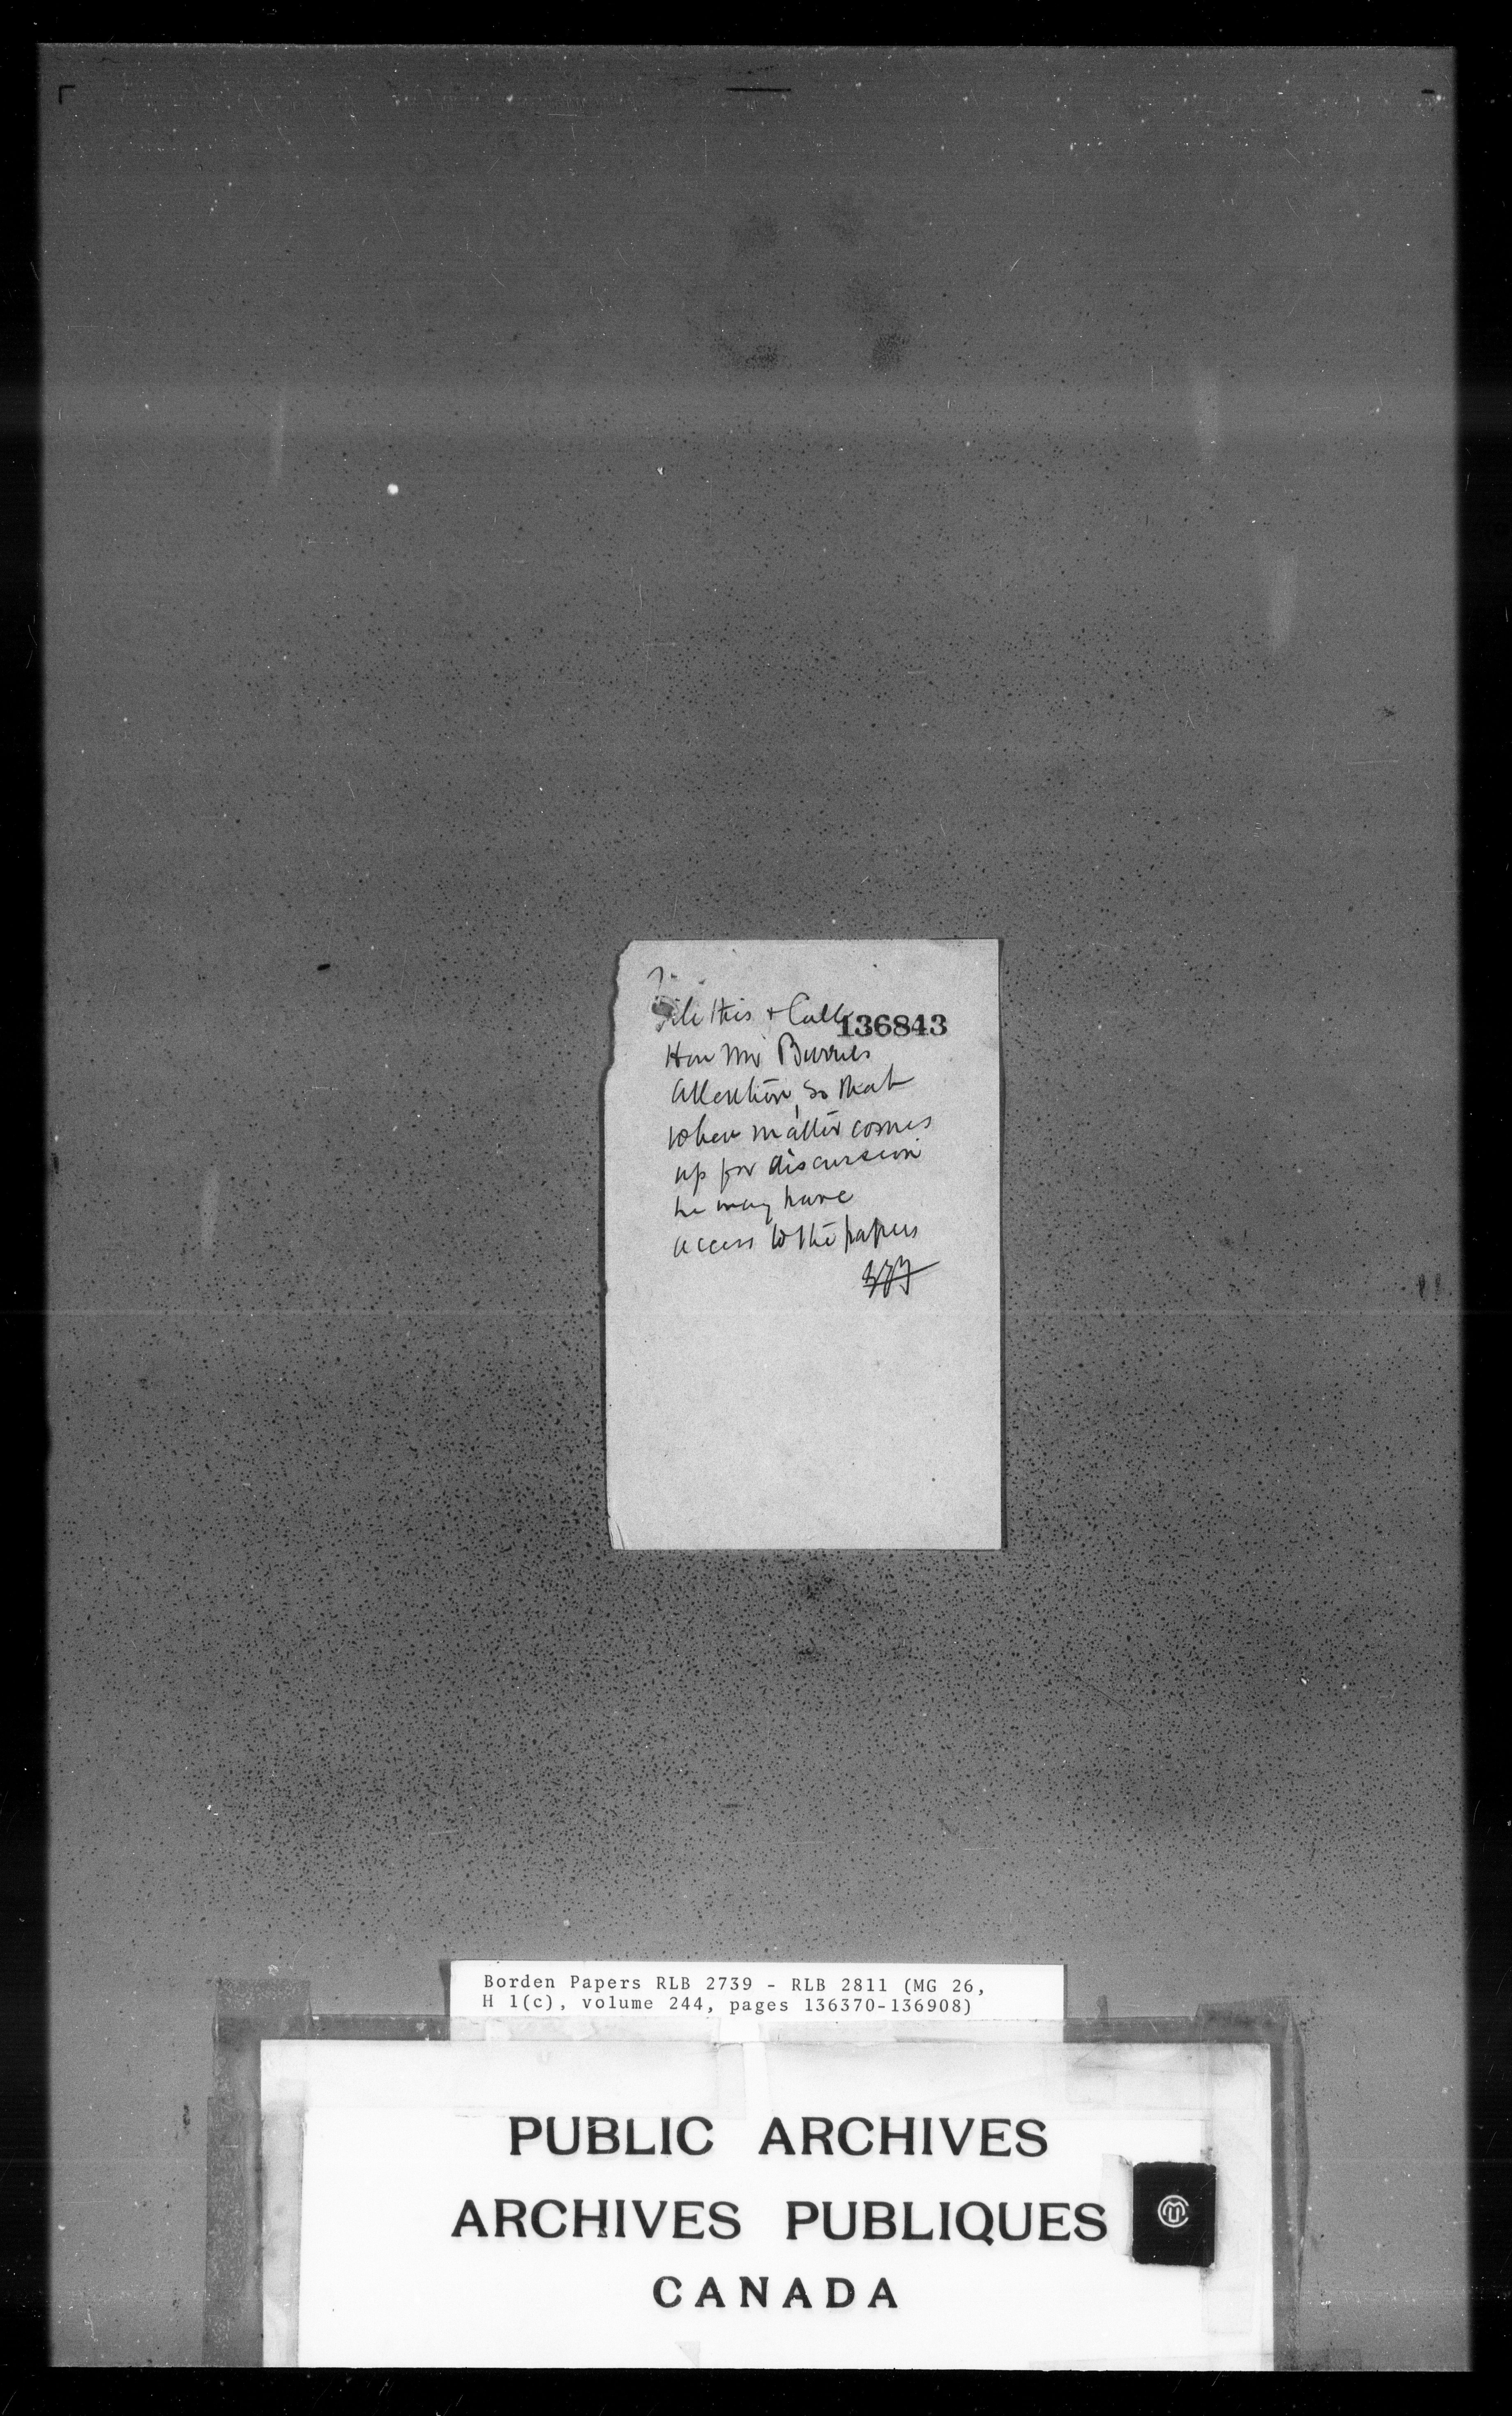 File this & Call
136843
Hon Mr Burrels
attention, so that
when matter comes
up for discussion
he may have
access to the papers
Borden Papers RLB 2739 - RLB 2811 (MG 26,
H 1(c), volume 244, pages 136370-136908)
PUBLIC ARCHIVES
ARCHIVES PUBLIQUES
CANADA